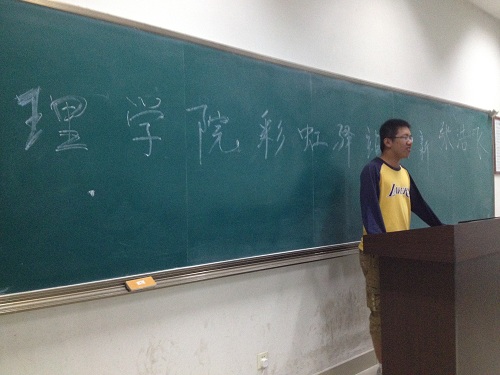 理学院彩虹驿站 新 张
LAKERS